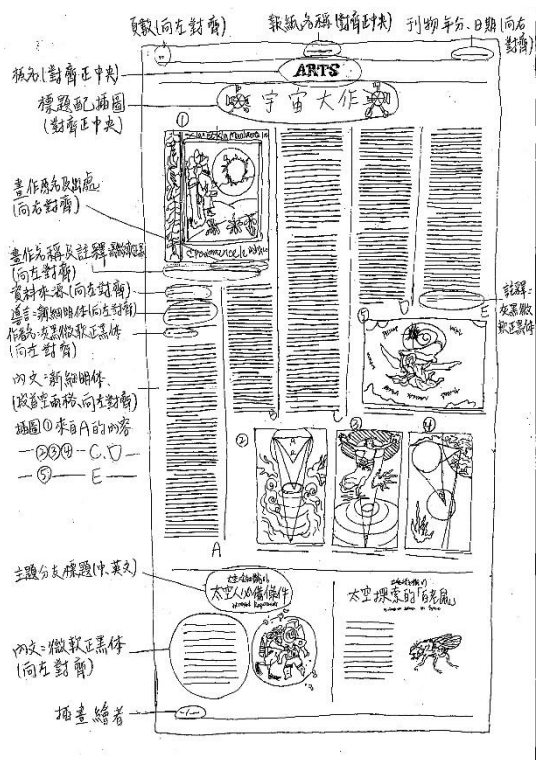 頁數(向左對齊)
報紙名稱(對齊正中央)
刊物年分、日期(向右對齊)
版名(對齊正中央)
ARTS
標題配插圖
(對齊正中央)
宇宙大作
①
畫作原名及出處
(向右對齊)
畫作名稱及註釋:
(向左對齊)
資料來源(向左對齊)
導言:新細明体(向左對齊)
作者名:灰黑微軟正黑体
(向左對齊)
註釋:
灰黑微
軟正黑体
內文:新細明体
(段首空兩格、向左對齊)
插圖①來自A的內容
—②③④—C.D—
—⑤—E—
B
D
E
⑤
②
③
④
A
主題分支標題(中、英文)
太空人必備條件
太空探索的「白老鼠」
內文:微軟正黑体
(向左對齊)
插畫繪者